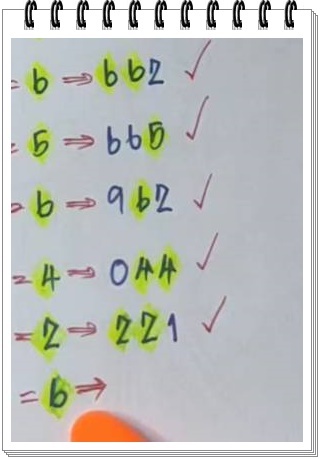 = 6 ⇒ 662 ✓
= 5 ⇒ 665 ✓
= 6 ⇒ 962 ✓
= 4 ⇒ 044 ✓
= 2 ⇒ 221 ✓
= 6 ⇒